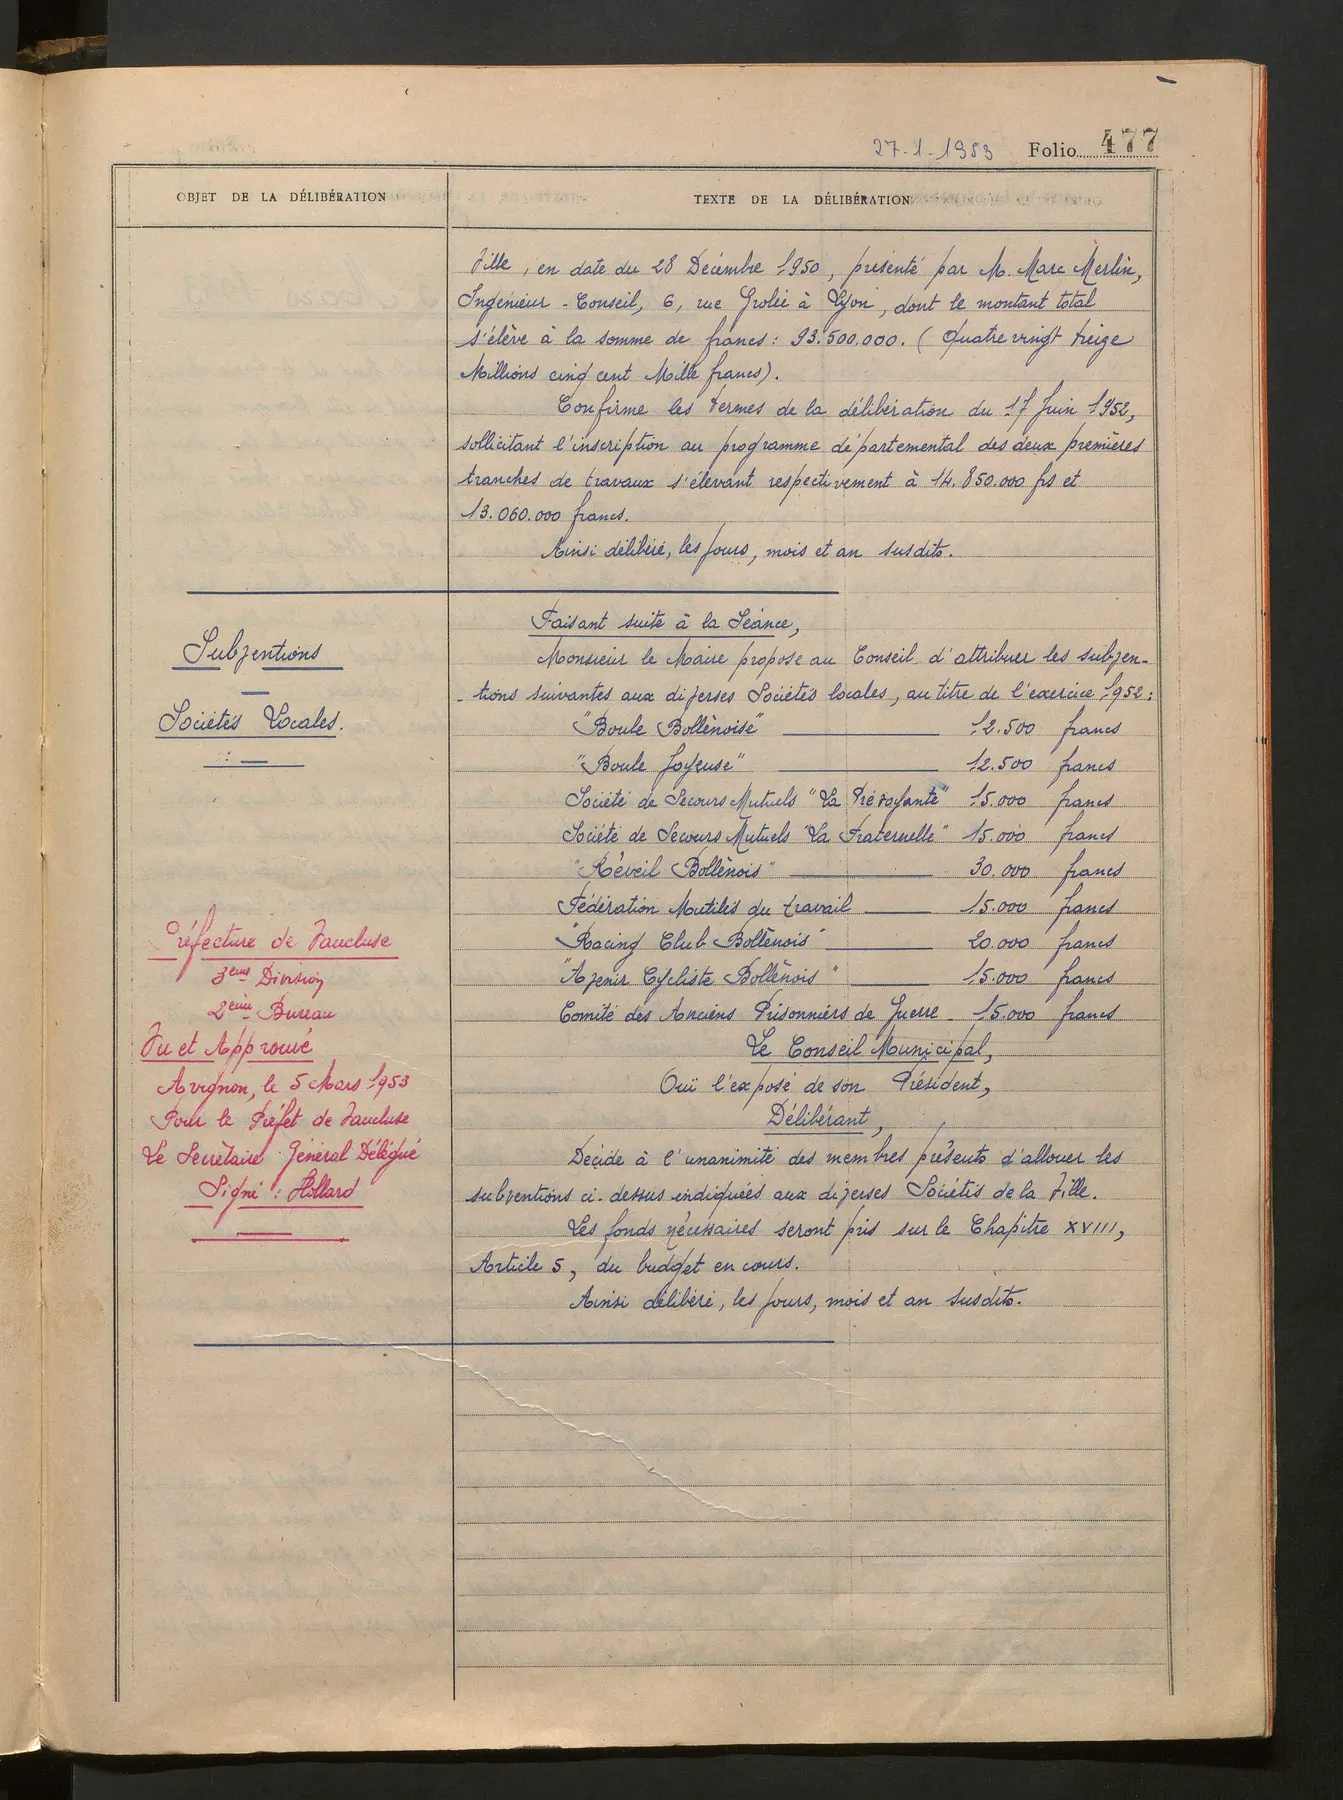 27-1-1953 Folio 477
OBJET DE LA DÉLIBÉRATION
TEXTE DE LA DÉLIBÉRATION
Ville, en date du 28 Décembre 1950, présenté par M. Marc Merlin,
Ingénieur-Conseil, 6, rue Grolée à Lyon, dont le montant total
s'élève à la somme de francs : 93.500.000. (Quatre vingt treize
Millions cinq cent Mille francs).
Confirme les termes de la délibération du 17 Juin 1952,
sollicitant l'inscription au programme départemental des deux premières
tranches de travaux s'élevant respectivement à 14.850.000 frs et
13.060.000 francs.
Ainsi délibéré, les jours, mois et an susdits.
Subventions
Sociétés Locales.
Faisant suite à la Séance,
Monsieur le Maire propose au Conseil d'attribuer les subven-
-tions suivantes aux diverses Sociétés locales, au titre de l'exercice 1952 :
"Boule Bollènoise" 12.500 francs
"Boule Joyeuse" 12.500 francs
Société de Secours Mutuels "La Prévoyante" 15.000 francs
Société de Secours Mutuels "La Fraternelle" 15.000 francs
"Réveil Bollènois" 30.000 francs
Fédération Mutilés du travail 15.000 francs
"Racing Club Bollènois" 20.000 francs
"Avenir Cycliste Bollènois" 15.000 francs
Comité des Anciens Prisonniers de Guerre - 15.000 francs
Le Conseil Municipal,
Ouï l'exposé de son Président,
Délibérant,
Décide à l'unanimité des membres présents d'allouer les
subventions ci-dessus indiquées aux diverses Sociétés de la Ville.
Les fonds nécessaires seront pris sur le Chapitre XVIII,
Article 5, du budget en cours.
Ainsi délibéré, les jours, mois et an susdits.
Préfecture de Vaucluse
3ème Division
2ème Bureau
Vu et Approuvé
Avignon, le 5 Mars 1953
Pour le Préfet de Vaucluse
Le Secrétaire Général Délégué
Signé : Hollard